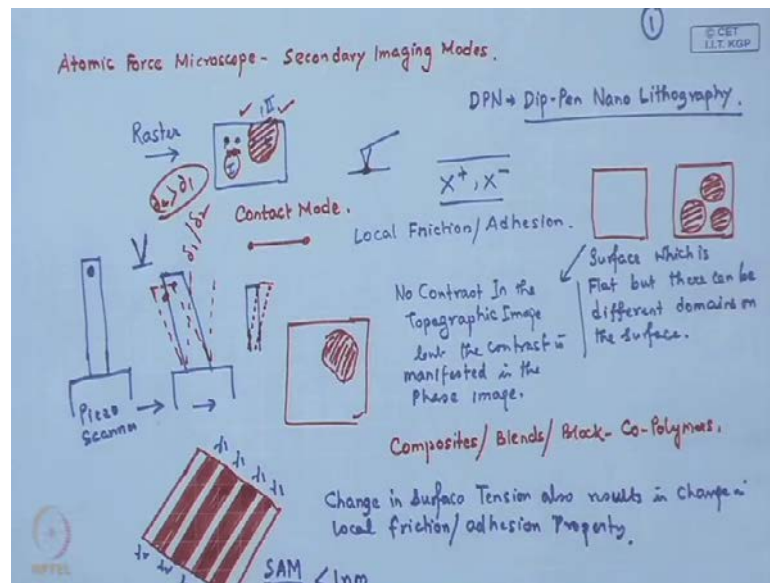 ①
© CET
I.I.T. KGP
Atomic Force Microscope - Secondary Imaging Modes.
DPN → Dip-Pen Nano Lithography.
Raster
II
I
δ2 > δ1
δ1 / δ2
X+, X-
Contact Mode.
Local Friction/Adhesion.
Surface Which is
Flat but there can be
different domains on
the surface.
No Contrast In the
Topographic Image
but the contrast is
manifested in the
Phase Image.
Piezo
Scanner
Composites/Blends/Block-Co-Polymers.
Change in Surface Tension also results in change in
Local friction/adhesion Property.
γ1 γ1 γ1 γ1
γ2 γ2 γ2
SAM <1nm
NPTEL